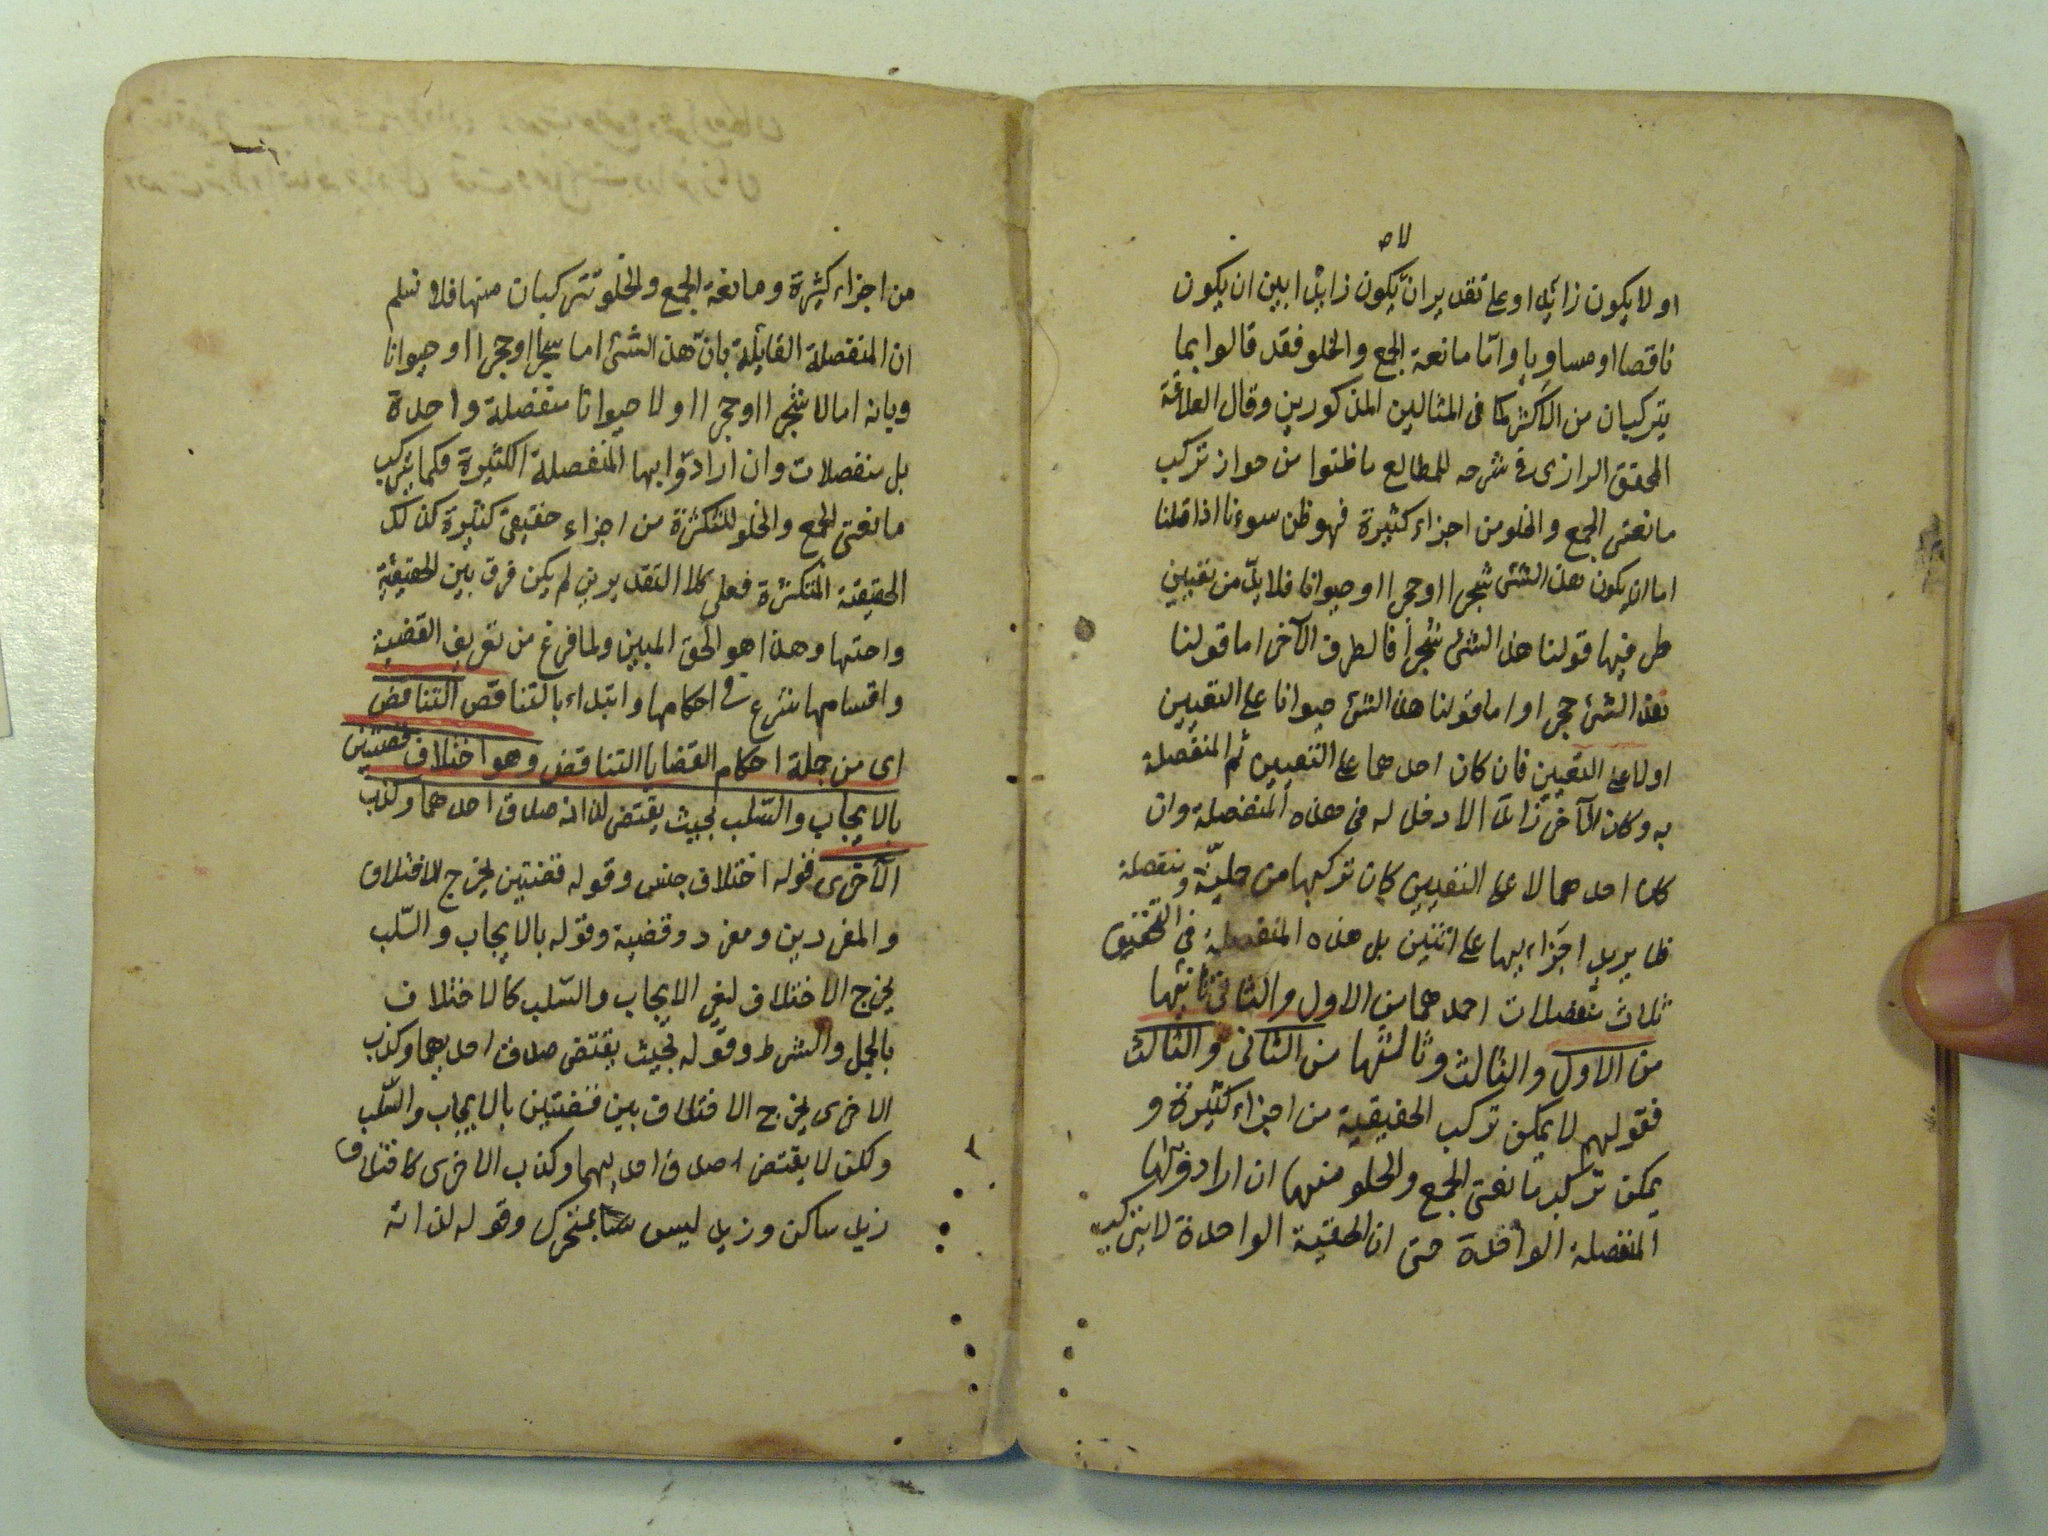 او لا يكون زائدا وعلى تقدير ان يكون زايدا بين ان يكون
ناقصا او مساويا واما مانعة الجمع والخلو فقد قالوا بما
يتركبان من اكثر كما فى المثالين المذكورين وقال العلامة
المحقق الرازى فى شرحه للمطالع ما ظنوا من جواز تركب
مانعتى الجمع والخلو من اجزاء كثيرة فهو ظن سوء اذا قلنا
اما ان يكون هذا الشئ شجرا او حجرا او حيوانا فلا بد من تعيين
طرفيها قولنا هذا الشئ شجرا فالطرف الآخر اما قولنا
هذا الشئ حجرا واما قولنا هذا الشئ حيوانا على التعيين
اولا على التعيين فان كان احدهما على التعيين تم المنفصلة
به وكان الآخر زائدا لا دخل له فى هذه المنفصلة وان
كان احدهما لا على التعيين كان تركيبها من حملية ومنفصلة
فلا يزيد اجزاءيها على اثنين بل هذه المنفصلة فى التحقيق
ثلاث منفصلات احدهما من الاول والثانى ثانيها
من الاول والثالث وثالثها من الثانى والثالث
فقولهم لا يمكن تركب الحقيقية من اجزاء كثيرة و
يمكن تركب مانعتى الجمع والخلو منها ان ارادوا بها
المنفصلة الواحدة حتى ان الحقيقية الواحدة لا يتركب
من اجزاء كثيرة ومانعة الجمع والخلو تتركبان منها فلا نسلم
ان المنفصلة القايلة بان هذا الشئ اما شجرا او حجرا او حيوانا
وبانه اما لا شجرا او حجرا او لا حيوانا منفصلة واحدة
بل منفصلات وان ارادوا بها المنفصلة الكثيرة فكما يتركب
مانعتى الجمع والخلو المتكثرة من اجزاء حقيقى كثيرة كذلك
الحقيقة المتكثرة فعلى كلا التقديرين لم يكن فرق بين الحقيقية
واختها وهذا هو الحق المبين ولما فرغ من تعريف القضية
واقسامها شرع فى احكامها وابتداء بالتناقض التناقض
اى من جملة احكام القضايا التناقض وهو اختلاف قضيتين
بالايجاب والسلب بحيث يقتضى لذاته صدق احدهما وكذب
الآخرى قوله اختلاف جنس وقوله قضيتين يخرج الاختلاف
والمفردين ومفرد وقضية وقوله بالايجاب والسلب
يخرج الاختلاف لغير الايجاب والسلب كالاختلاف
بالحمل والشرط وقوله بحيث يقتضى صدق احديهما وكذب
الاخرى يخرج الاختلاف بين قضيتين بالايجاب والسلب
ولكن لا يقتضى صدق احديهما وكذب الاخرى كاختلاف
زيد ساكن وزيد ليس بمتحرك وقوله لذاته